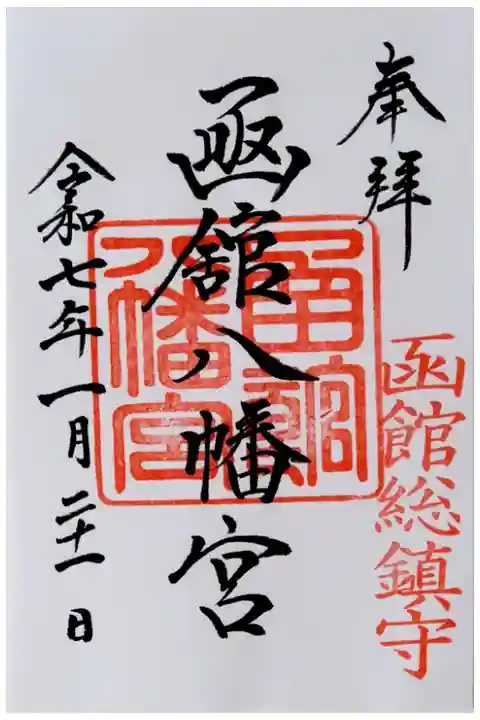 奉拝
函館総鎮守
函舘八幡宮
函館八幡宮
令和七年一月二十一日